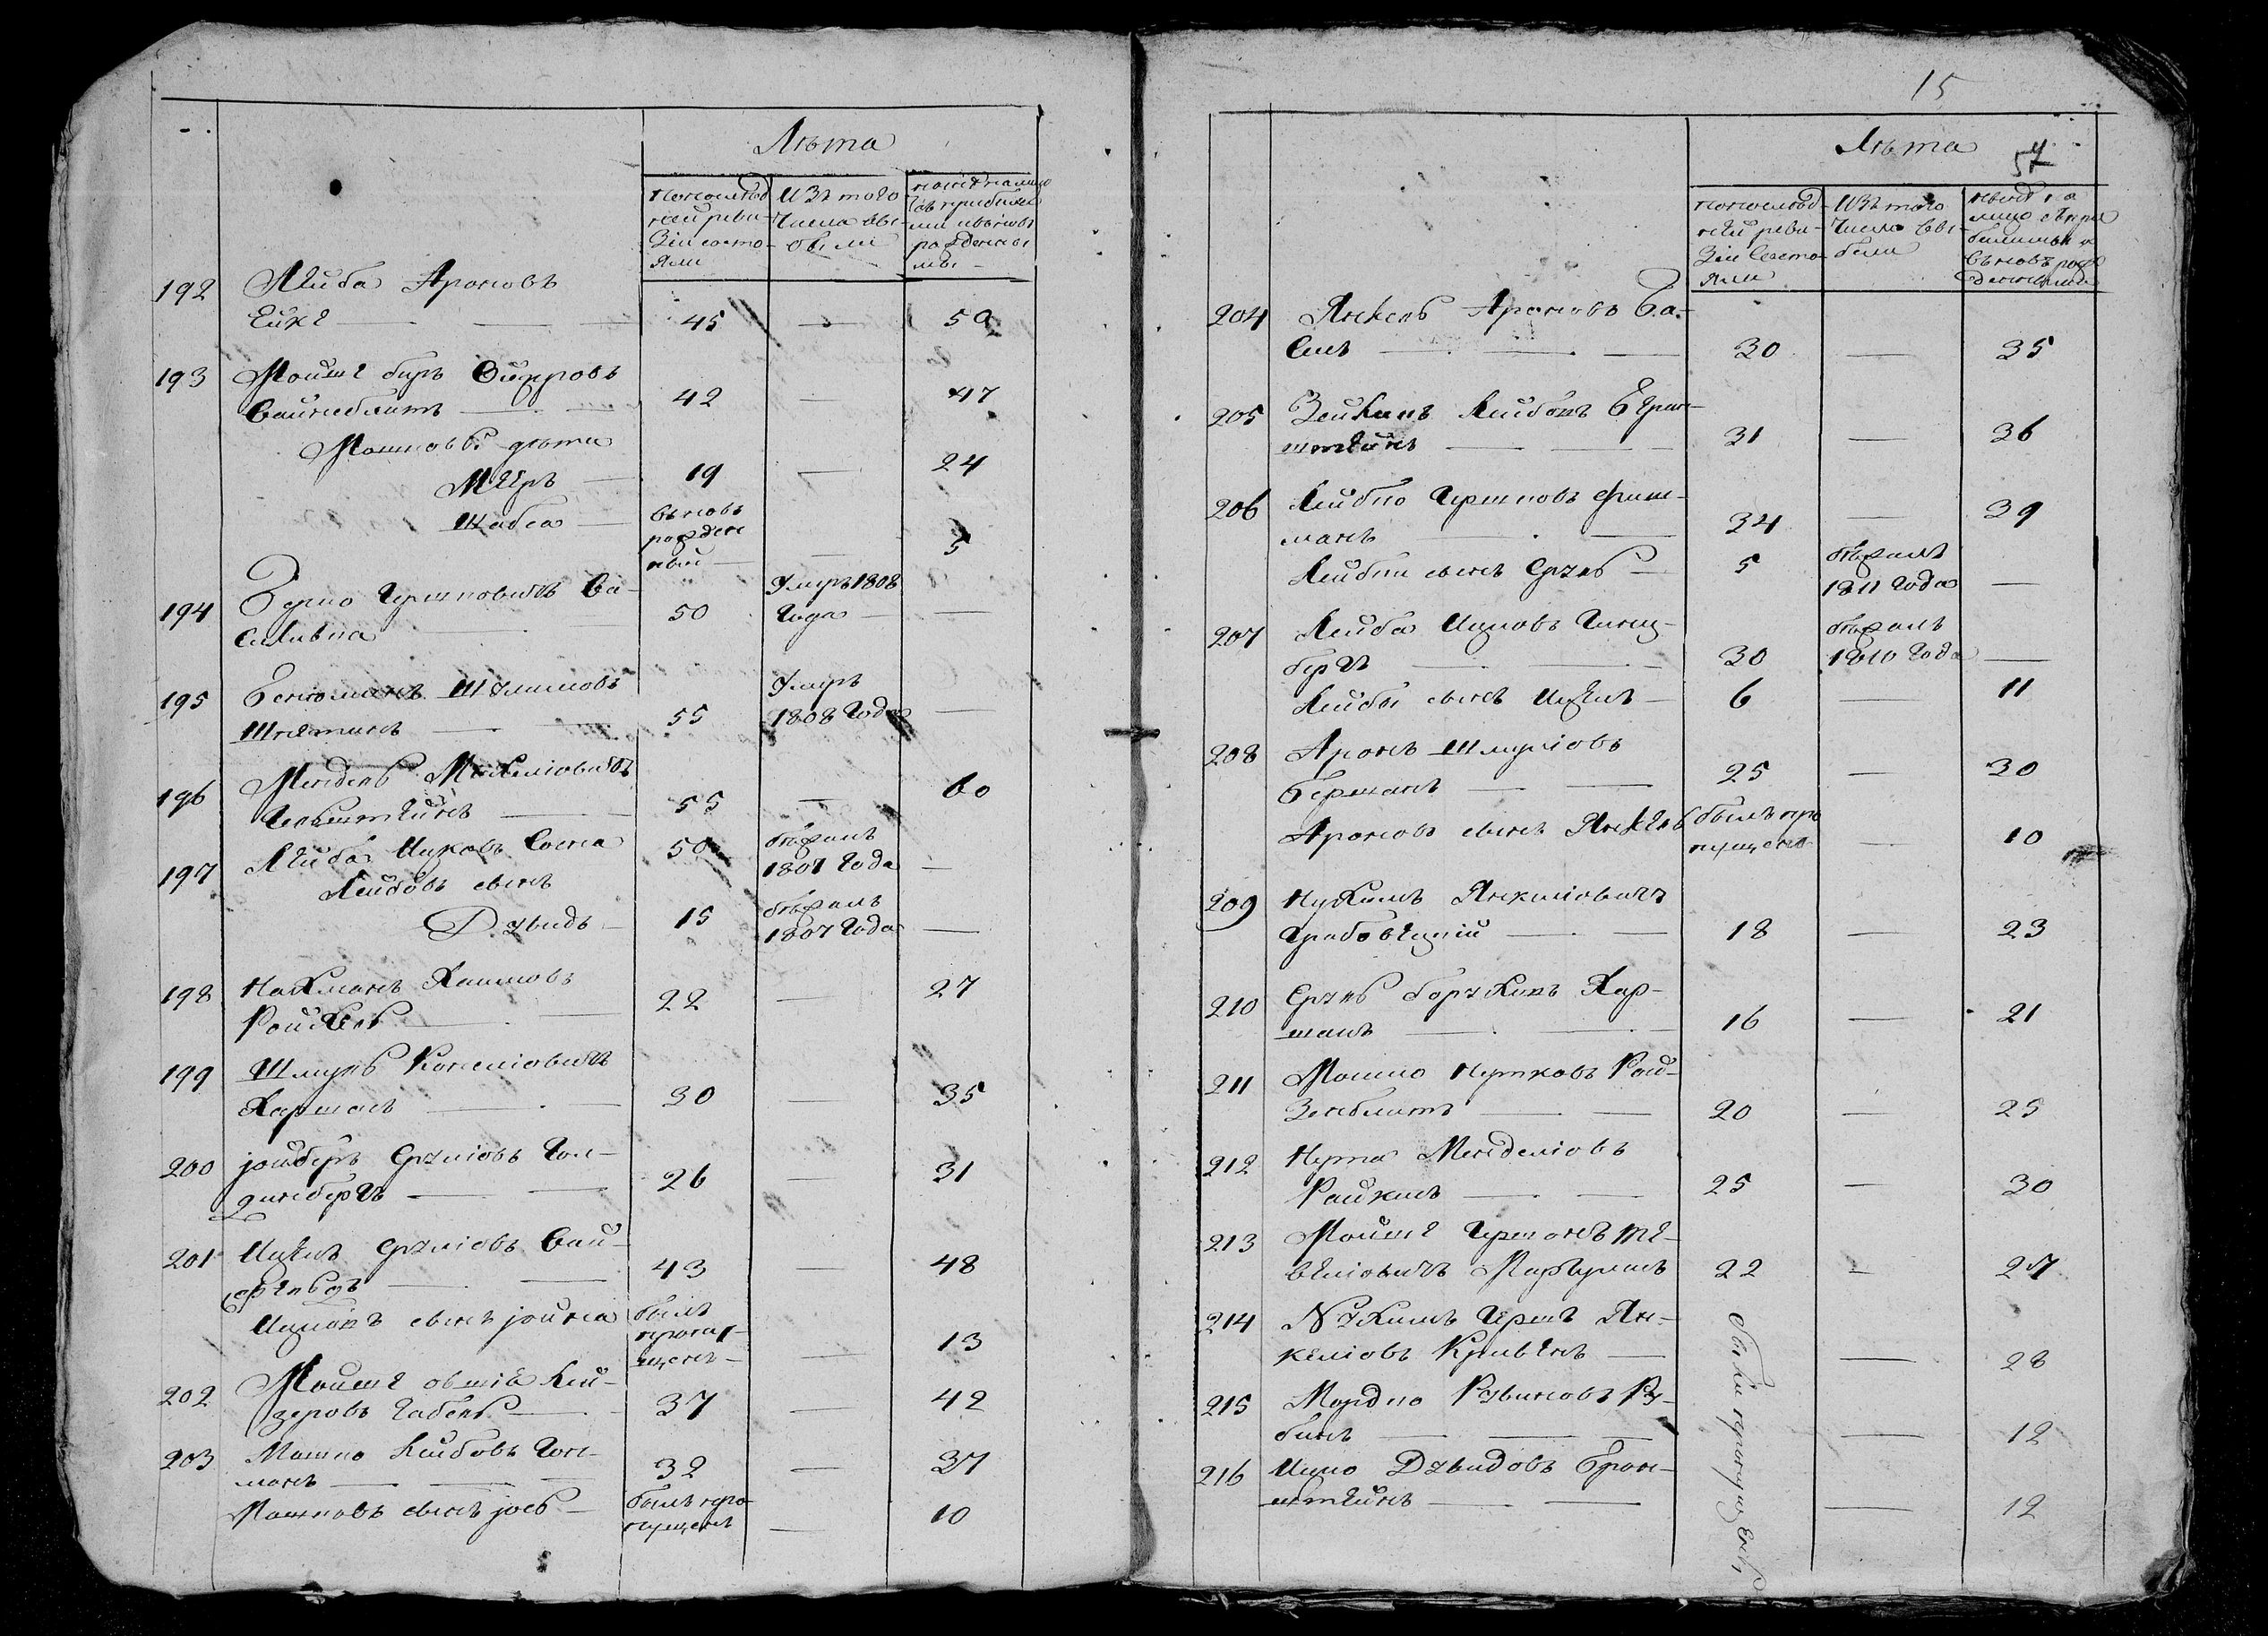 Лѣта
по послѣд
ней реви-
зіи состо-
яли
изъ того
числа вы-
были
ныне на лицо
съ прибылы
ми и вновь
рожденны
ми
192 Лейба Ароновъ
Ейхе 45 — 50
193 Мойше беръ
Вайнеблатъ 42 — 47
Мошковы дѣти
Мееръ 19 — 24
Шабса
вновь
рожден
ный — 5
194 Берко Гершковичъ Ва-
50 Умеръ 1808
года —
195 Шлиомовъ
55 Умеръ
1808 года —
196 Мендель
55 — 60
197 Лейба Ицковъ Сосна 50 бѣжалъ
1807 года —
Лейбовъ сынъ
Дувидъ 15 бѣжалъ
1807 года —
198 Нахманъ Хаимовъ
Ройхель 22 — 27
199 Шмуль
Харшанъ 30 — 35
200 Іойберъ Сруліовъ Гол-
динбергъ 26 — 31
201 Ицикъ Сруліовъ Вай-
43 — 48
Ициковъ сынъ Іойна былъ
пропу-
щенъ — 13
202 Мойше овшія Лей-
зеровъ Габель 37 — 42
203 Мошко Лейбовъ Гон-
манъ 32 — 37
Мошковъ сынъ Іось былъ про-
пущенъ — 10
15
Лѣта
57
по послѣд-
ней реви-
зіи состо-
яли
изъ того
числа вы-
были
на
лицо съ при
былыми и
вновь рож
денными
204 Янкель Ароновъ Ба-
синъ 30 — 35
205 Лейбовъ Берин-
штейнъ 31 — 36
206 Лейбко Гершковъ Фиш-
манъ 34 — 39
Лейбки сынъ Сруль 5 бѣжалъ
1811 года —
207 Лейба Ицковъ Гинц-
бергъ 30 бѣжалъ
1810 года —
Лейбы сынъ Ицикъ 6 — 11
208 Аронъ Шмуліовъ
Бершанъ 25 — 30
Ароновъ сынъ Янкель былъ про
пущенъ — 10
209 Нухимъ Янкеліовичъ
Грабовецкій 18 — 23
210 Сруль Борухинъ Хар-
шанъ 16 — 21
211 Мошко Нутковъ Рой-
зенблитъ 20 — 25
212 Нута Менделіовъ
Райхманъ 25 — 30
213 Мойше Гершонъ Те-
веліовичъ Маргулисъ 22 — 27
214 Нухимъ Гершъ Ян-
келіовъ — 28
215 Мордко Рувиновъ Ру-
бинъ — 12
216 Ицко Дувидовъ Брон-
штейнъ — 12
были пропущены